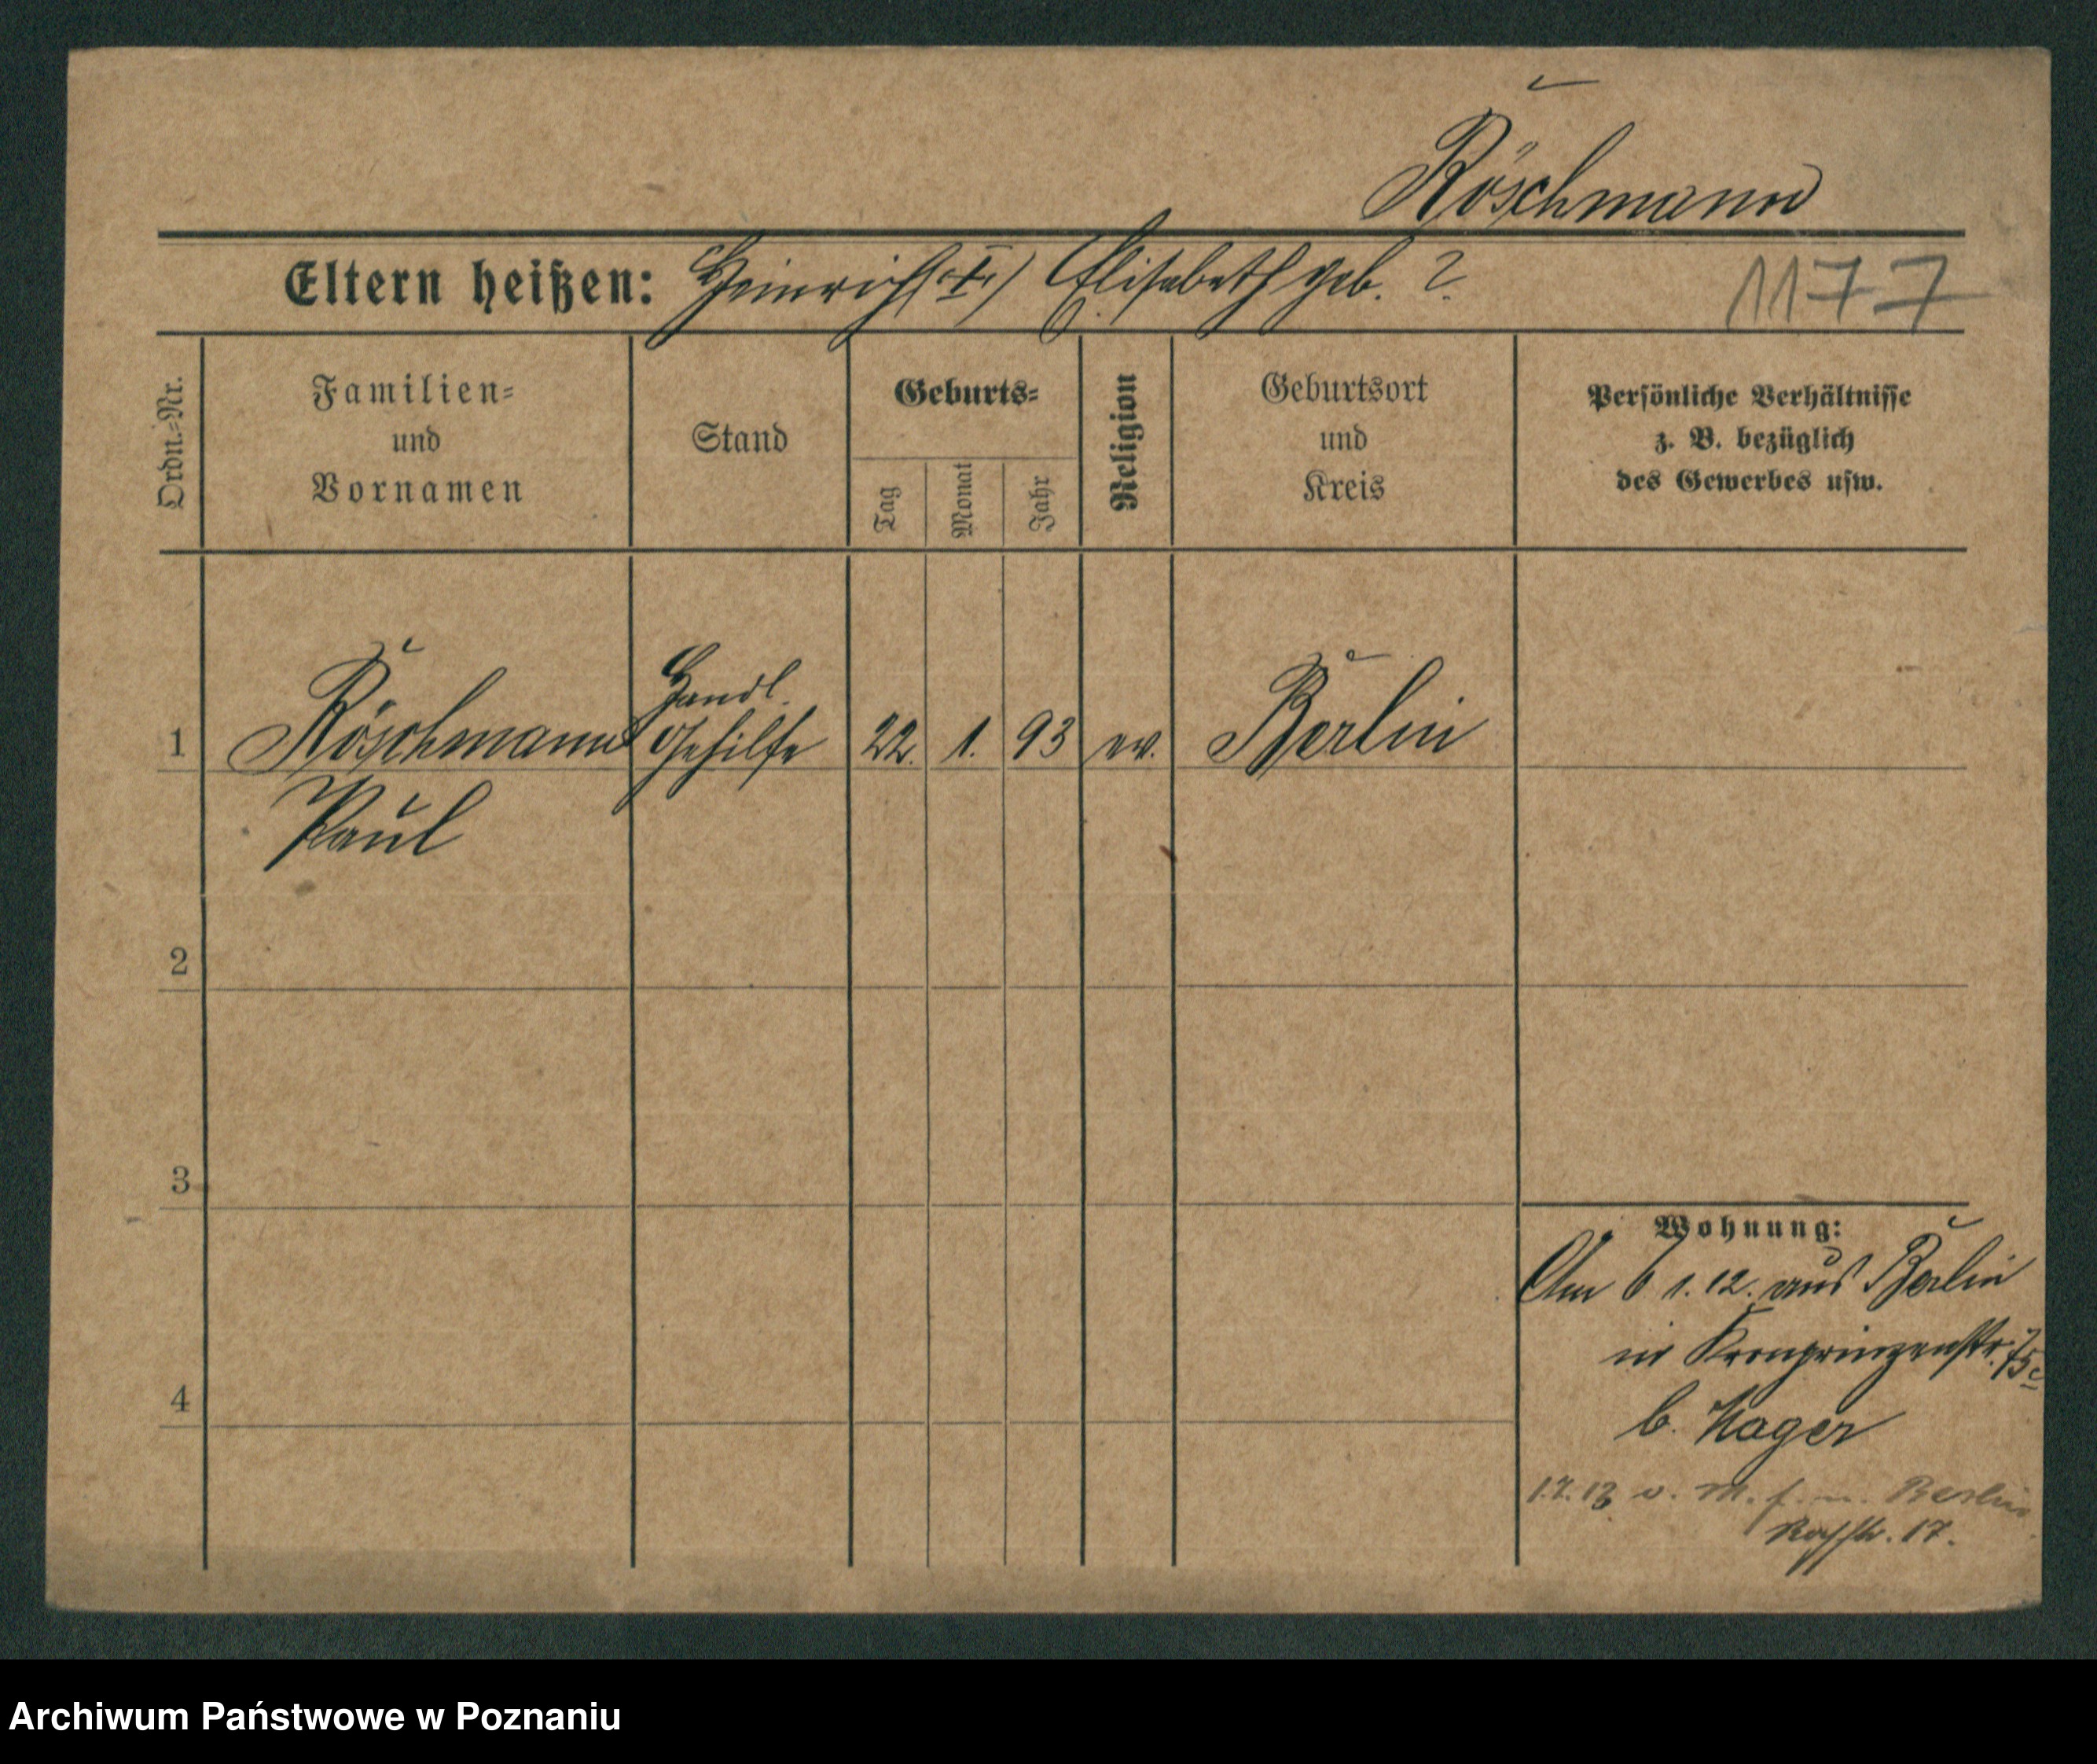 Röschmann
Eltern heißen: Heinrich (†) Elisabeth geb. ?
1177
Ordn.-Nr.
Familien-
und
Vornamen
Stand
Geburts-
Tag
Monat
Jahr
Religion
Geburtsort
und
Kreis
Persönliche Verhältnisse
z. B. bezüglich
des Gewerbes usw.
1 Röschmann Handl. Gehilfe 22. 1. 93 ev. Berlin
Paul
2
3
4
Wohnung:
Am 6 1. 12. aus Berlin
in Kronprinzenstr.
b. Hager
v. M. f. n. Berlin
17.
Archiwum Państwowe w Poznaniu